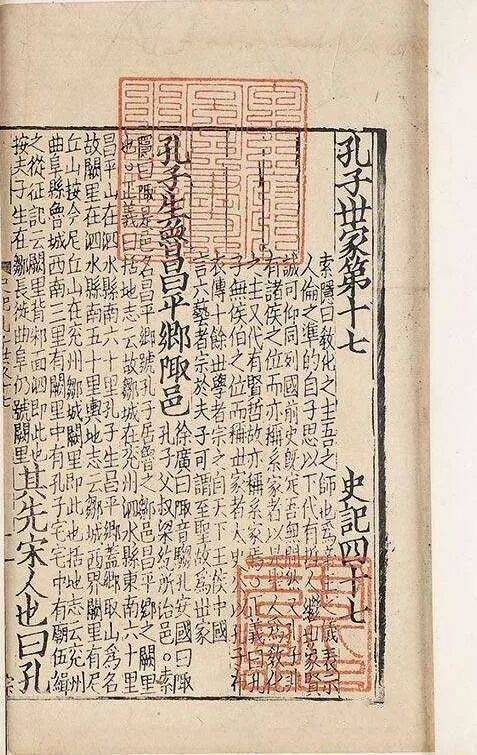 孔子世家第十七 史記四十七
索隱曰教化之主吾之師也為 儀表示
人倫之準的自子思以下代有 人繼世象賢
誠可仰同列國前史既定吾無間 又孔子非
有諸侯之位而亦稱系家者以 人為教化
之主又代有賢哲故亦稱系家焉。正義曰孔
子無侯伯之位而稱世家者太史 以孔子布
衣傳十餘世學者宗之自天下王侯中國
言六藝者宗於夫子可謂至聖故為世家
孔子生魯昌平鄉陬邑
徐廣曰陬音騶孔安國曰陬
孔子父叔梁紇所治邑。索
隱曰陬是邑名昌平鄉號孔子居魯之鄒邑昌平鄉之闕里
也。正義曰括地志云故鄒城在兗州泗水縣東南六十里
昌平山在泗水縣南六十里孔子生昌平鄉蓋鄉取山為名
故闕里在泗水縣南五十里輿地志云鄒城西界闕里有尼
丘山按今尼丘山在兗州鄒城闕里即此也括地志云兗州
曲阜縣魯城西南三里有闕里中有孔子宅宅中有廟伍緝
之從征記云闕里背邾面泗即此也
按夫子生在鄒長徙曲阜仍號闕里
其先宋人也曰孔